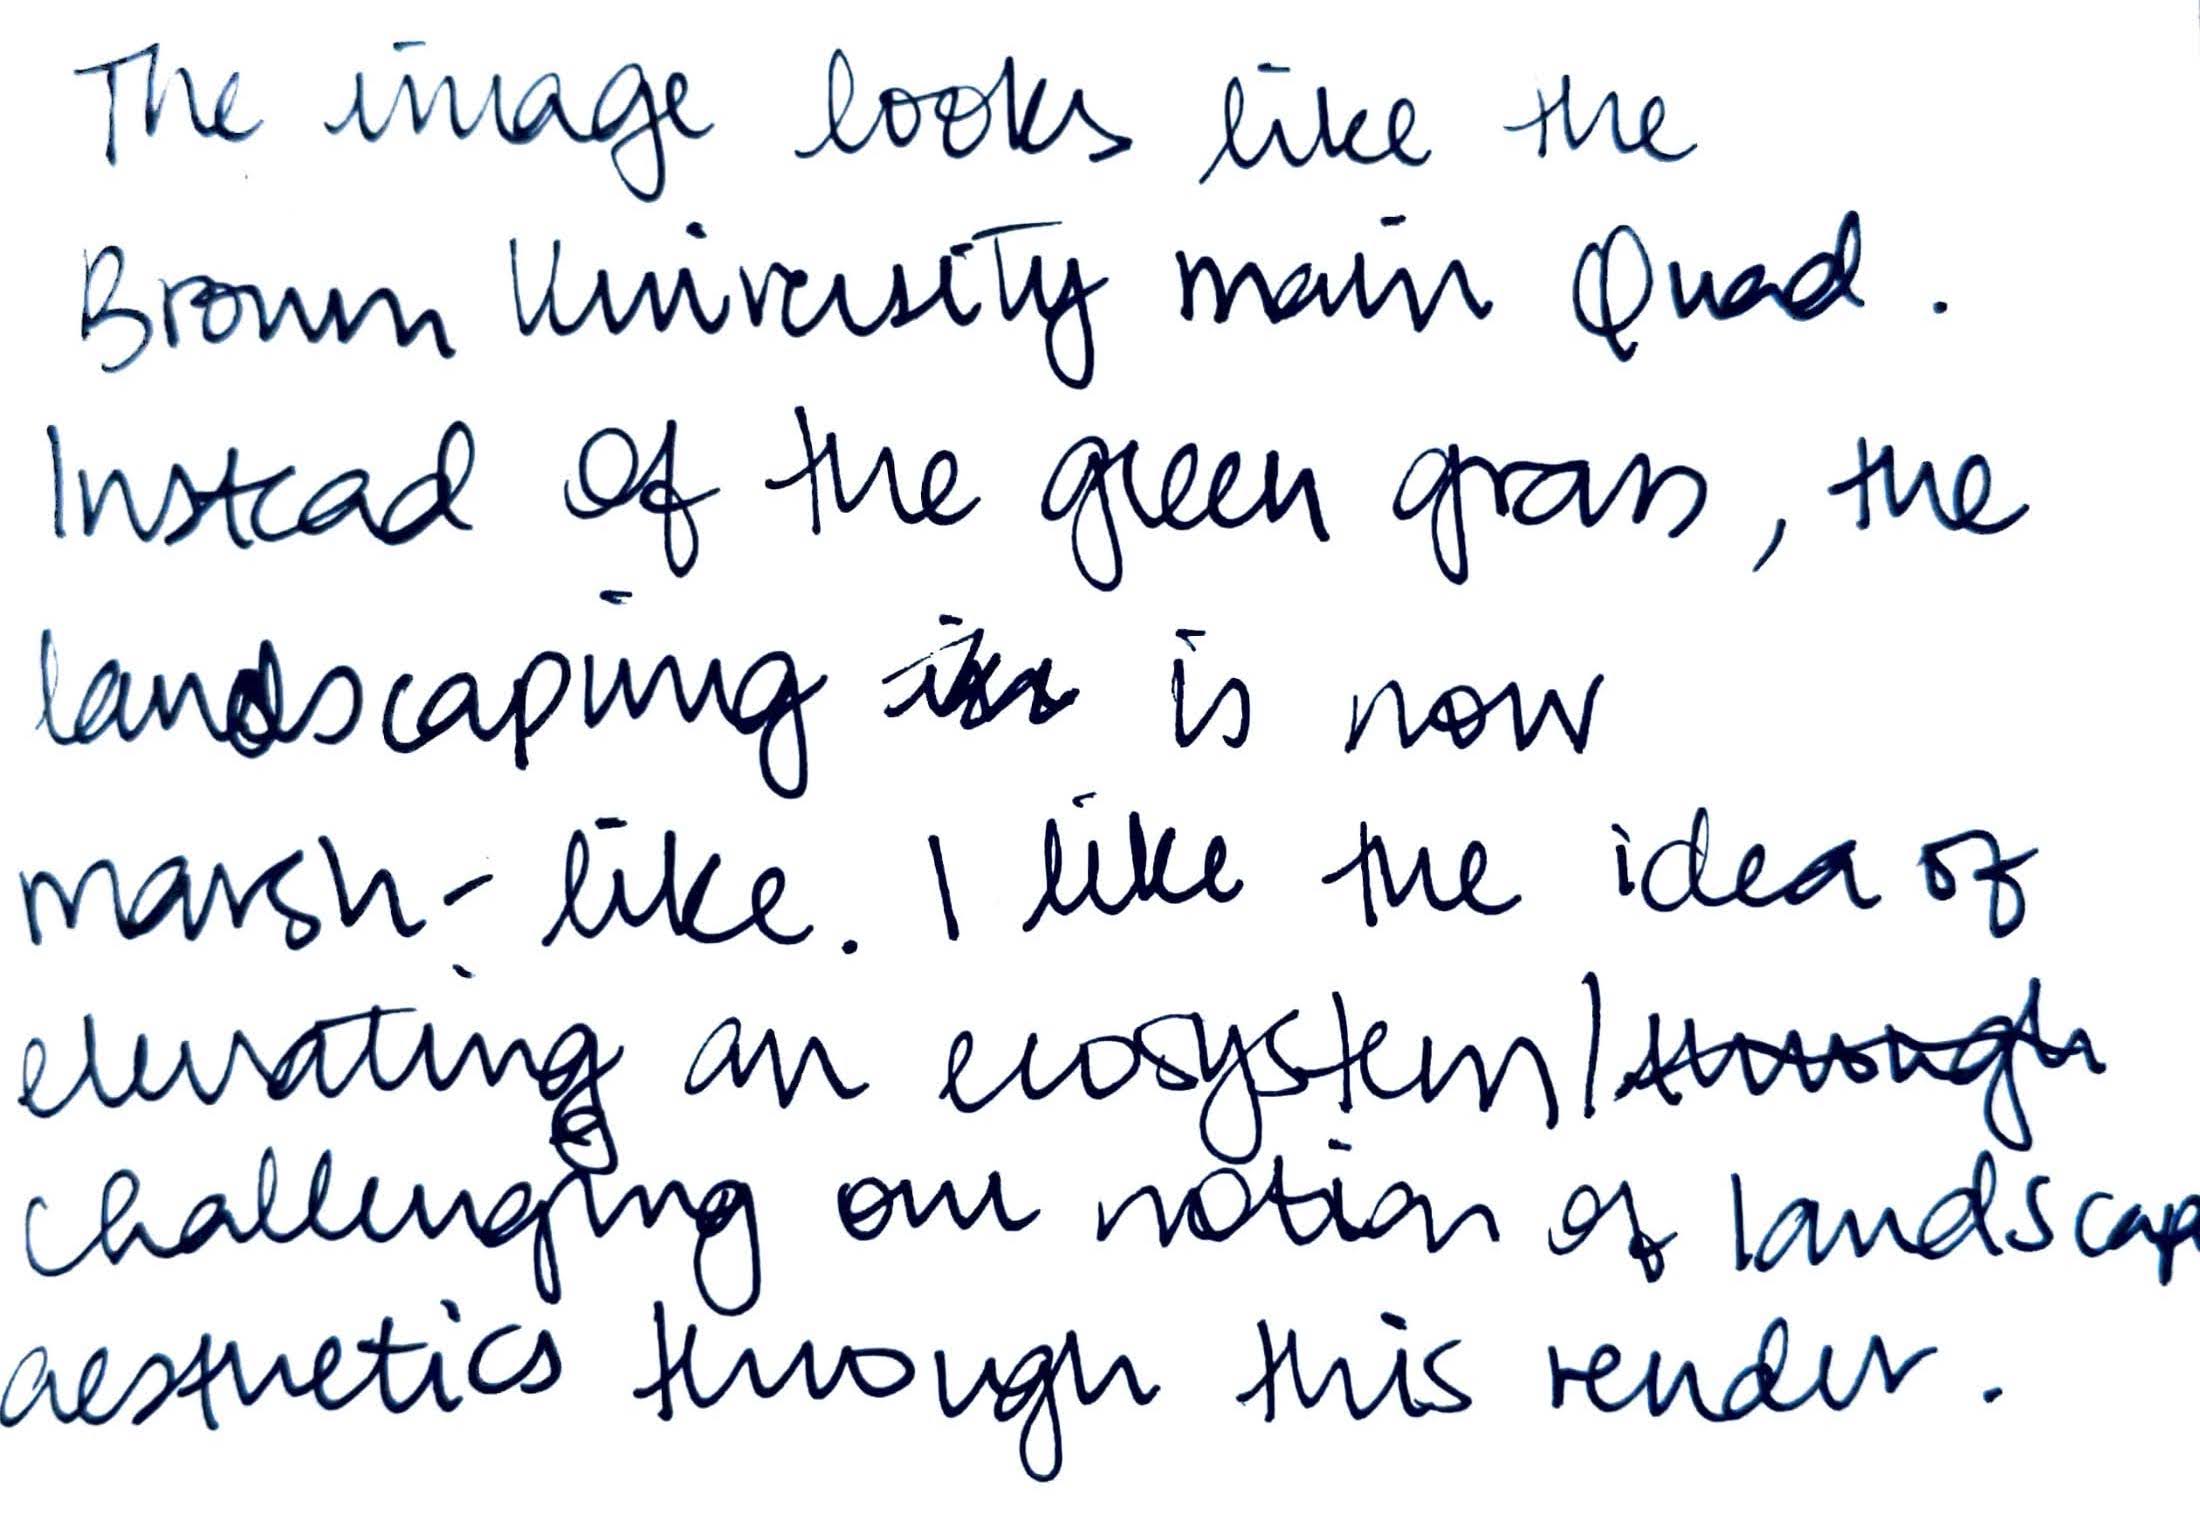 The image looks like the
Brown University main Quad.
Instead of the green grass, the
landscaping is now
marsh-like. I like the idea of
elevating an ecosystem/through
challenging our notion of landscap
aesthetics through this render.